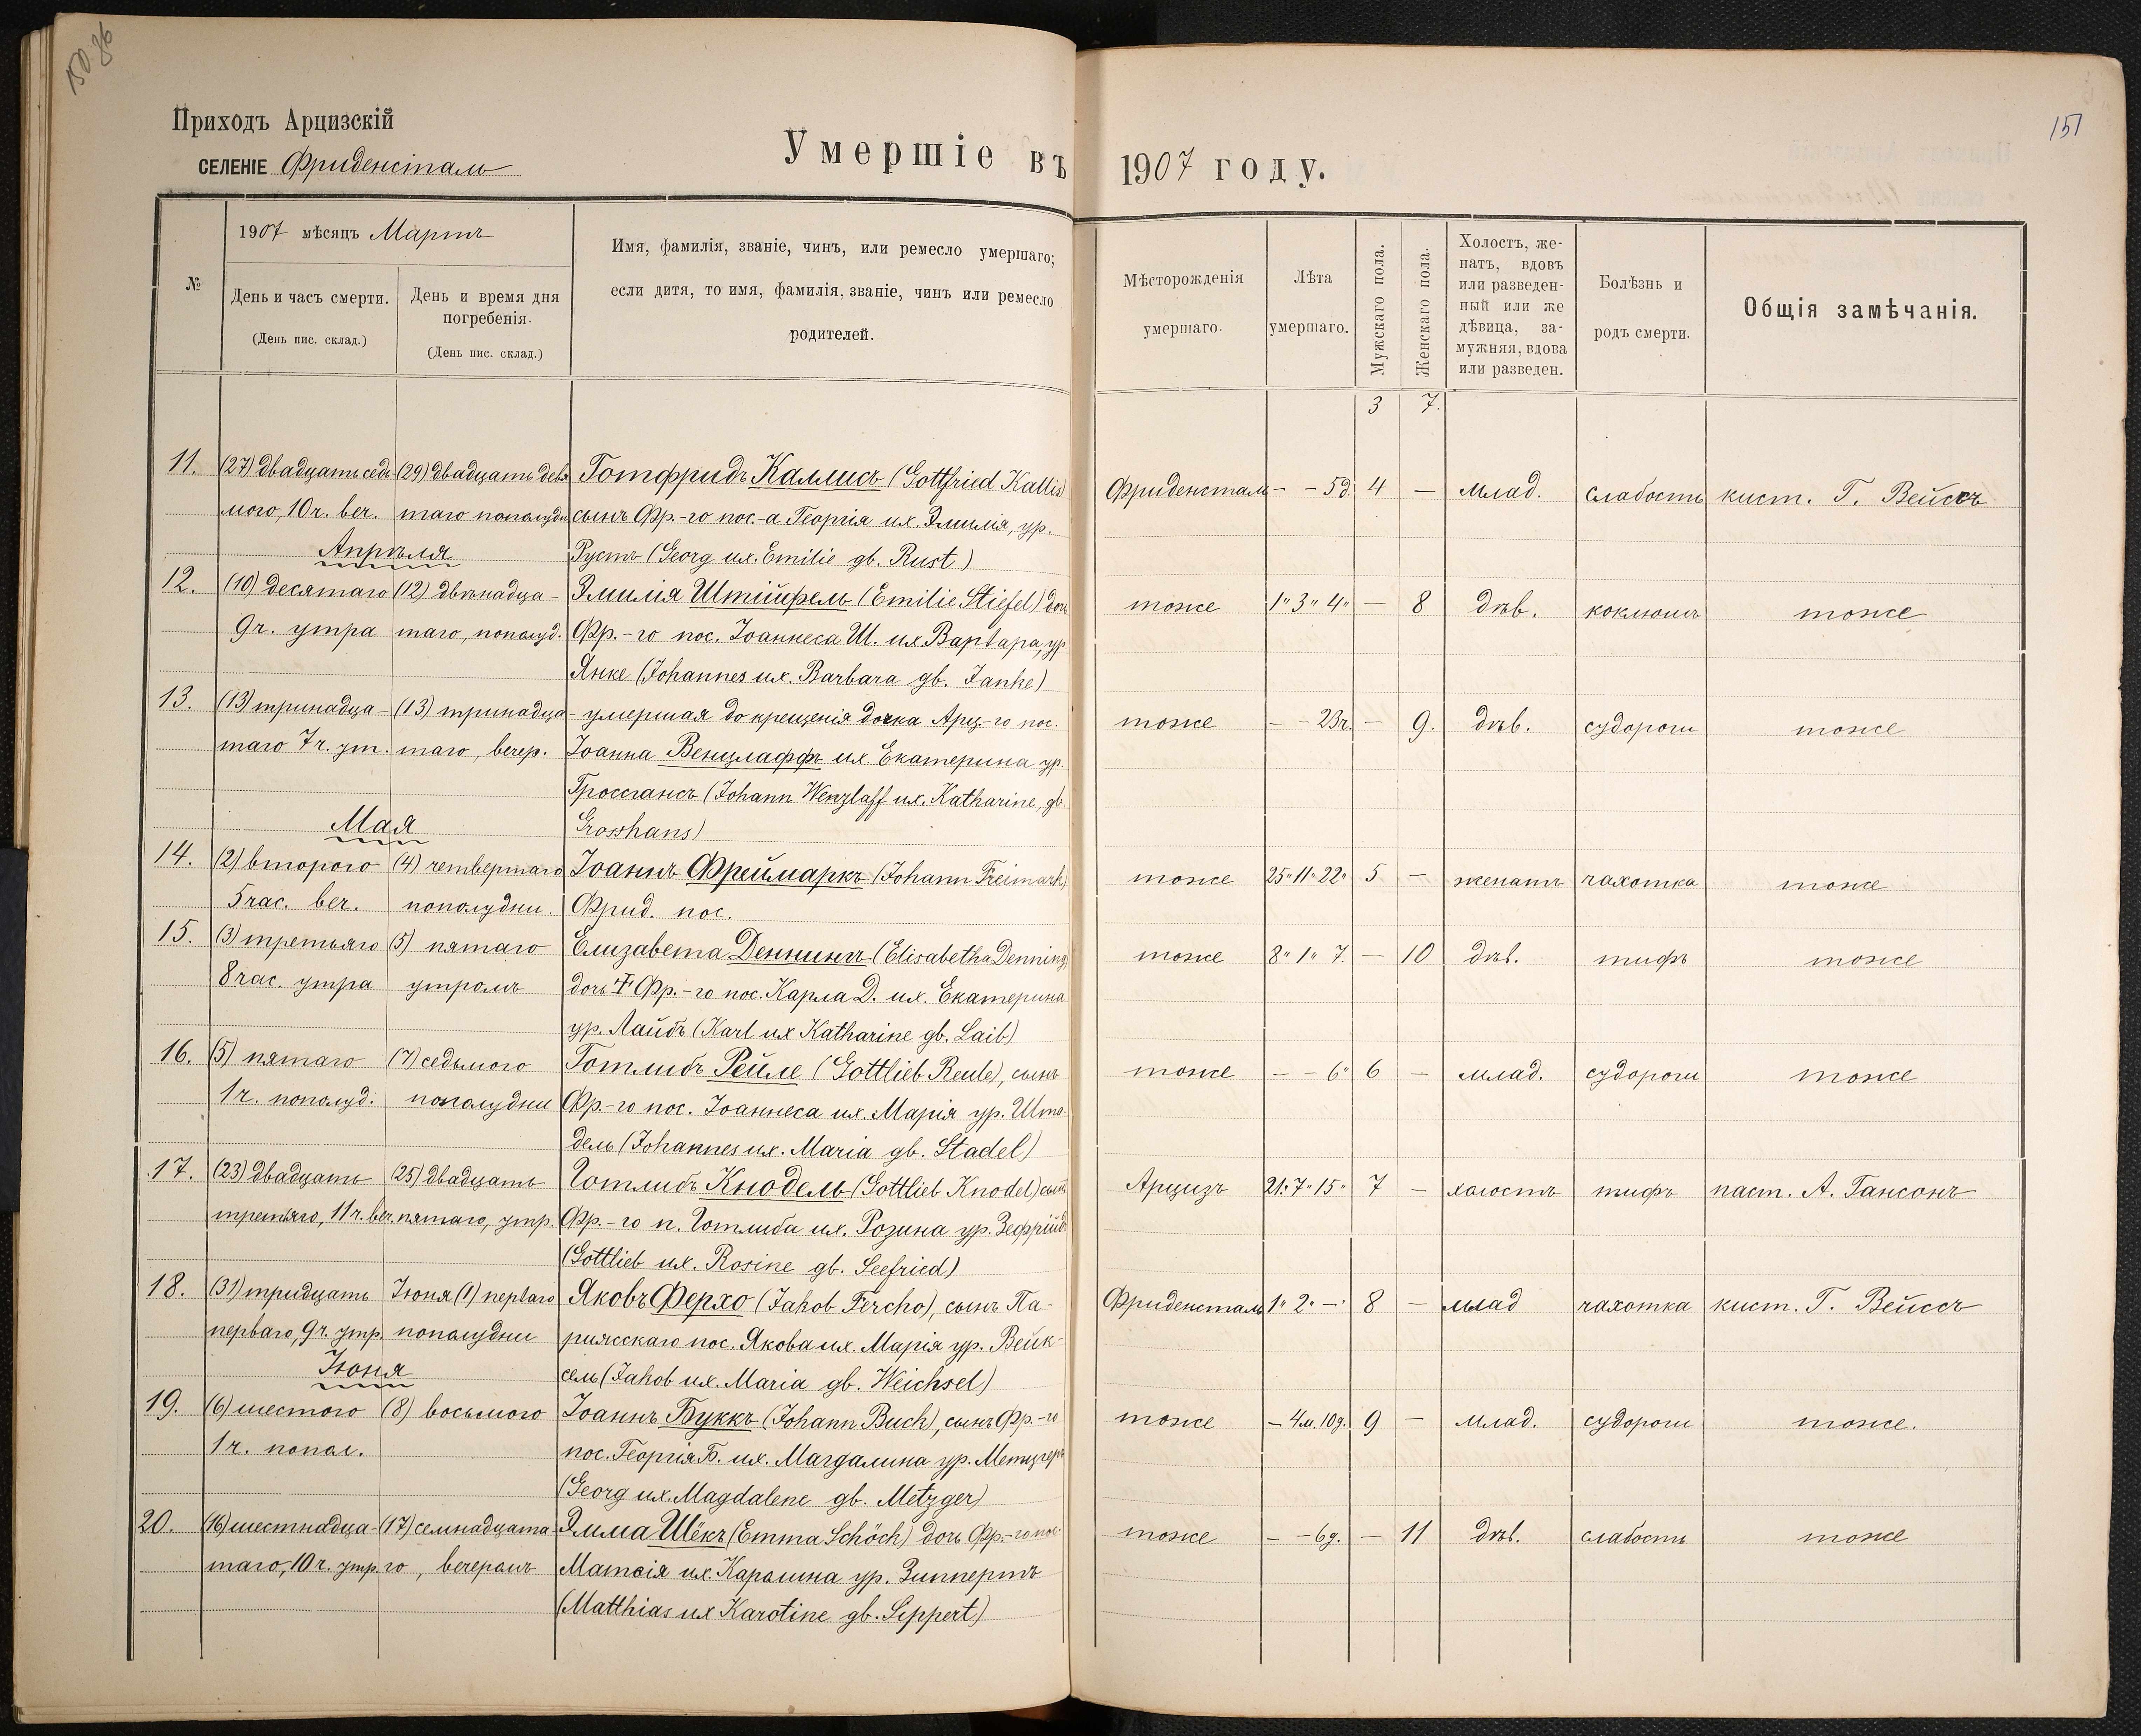 150 86
Приходъ Арцизскій
СЕЛЕНІЕ Фриденсталь
Умершіе въ 1907 году.
151
№
1907 мѣсяцъ Мартъ
День и часъ смерти.
(День пис. склад.)
День и время дня
погребенія.
(День пис. склад.)
Имя, фамилія, званіе, чинъ, или ремесло умершаго;
если дитя, то имя, фамилія, званіе, чинъ или ремесло
родителей.
Мѣсторожденія
умершаго.
Лѣта
умершаго.
Мужскаго пола.
Женскаго пола.
Холостъ, же-
натъ, вдовъ
или разведен-
ный или же
дѣвица, за-
мужняя, вдова
или разведен.
Болѣзнь и
родъ смерти.
Общія замѣчанія.
3 7.
11. (27) двадцать седь- (29) двадцать девя Готфридъ Каллисъ (Gottfried Kallis) Фриденсталь - - 5д. 4 — млад. слабость кист. Г. Вейссъ
мого, 10 ч. веч. таго пополудн сынъ Фр.-го пос-а Георгія их. Эмилія, ур.
Апрѣля Рустъ (Georg их. Emilie gb. Rust)
12. (10) десятаго (12) двѣнадца- Эмилія Штійфель (Emilie Stiefel) дочь тоже 1" 3" 4" — 8 дѣв. коклюшъ тоже
9 ч. утра таго, пополуд. Фр.-го пос. Іоаннеса Ш. их. Варвара, ур.
Янке (Johannes их. Barbara gb. Janke)
13. (13) тринадца- (13) тринадца- умершая до крещенія дочка Арц-го пос. тоже - - 23ч. — 9. дѣв. судороги тоже
таго 7 ч. ут. таго, вечер. Іоанна Венцлаффъ их. Екатерина ур.
Гроссгансъ (Johann Wenzlaff их. Katharine, gb.
Мая Grosshans)
14. (2) второго (4) четвертаго Іоаннъ Фреймаркъ (Johann Freimark) тоже 25" 11" 22" 5 — женатъ чахотка тоже
5 час. веч. пополудни. Фрид. пос.
15. (3) третьяго (5) пятаго Елизавета Деннингъ (Elisabetha Denning) тоже 8" 1" 7. — 10 дѣв. тифъ тоже
8 час. утра утромъ дочь † Фр.-го пос. Карла Д. их. Екатерина
ур. Лайбъ (Karl их Katharine gb. Laib)
16. (5) пятаго (7) седьмого Готлибъ Рейле (Gottlieb Reule), сынъ тоже - - 6" 6 — млад. судороги тоже
1 ч. пополуд. пополудни Фр.-го пос. Іоаннеса их. Марія ур. Шта-
дель (Johannes их. Maria gb. Stadel)
17. (23) двадцать (25) двадцать Готлибъ Кнодель (Gottlieb Knodel) сынъ Арцизъ 21" 7" 15" 7 — холостъ тифъ паст. А. Гансонъ
третьяго, 11 ч. веч. пятаго, утр. Фр.-го п. Готлиба их. Розина ур. Зефрійд
(Gottlieb их. Rosine gb. Seefried)
18. (31) тридцать Іюня (1) перваго Яковъ Ферхо (Jakob Fercho), сынъ Па- Фриденсталь 1" 2" -" 8 — млад чахотка кист. Г. Вейссъ
перваго, 9 ч. утр. пополудни рижскаго пос. Якова их. Марія ур. Вейк-
Іюня сель (Jakob их. Maria gb. Weichsel)
19. (6) шестого (8) восьмого Іоаннъ Буккъ (Johann Buck), сынъ Фр.-го тоже - 4м. 10д. 9 — млад. судороги тоже.
1 ч. попол. пос. Георгія Б. их. Магдалина ур. Метцгеръ
(Georg их. Magdalene gb. Metzger)
20. (16) шестнадца- (17) семнадцата- Эмма Шёкъ (Emma Schöch) дочь Фр.-го пос. тоже - - 6д. — 11 дѣв. слабость тоже
таго, 10 ч. утр. го, вечеромъ Матѳія их. Каролина ур. Зиппертъ
(Matthias их Karoline gb. Sippert)